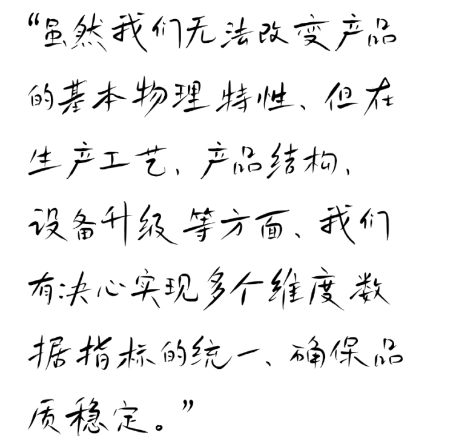 “虽然我们无法改变产品
的基本物理特性、但在
生产工艺、产品结构、
设备升级等方面、我们
有决心实现多个维度数
据指标的统一、确保品
质稳定。”